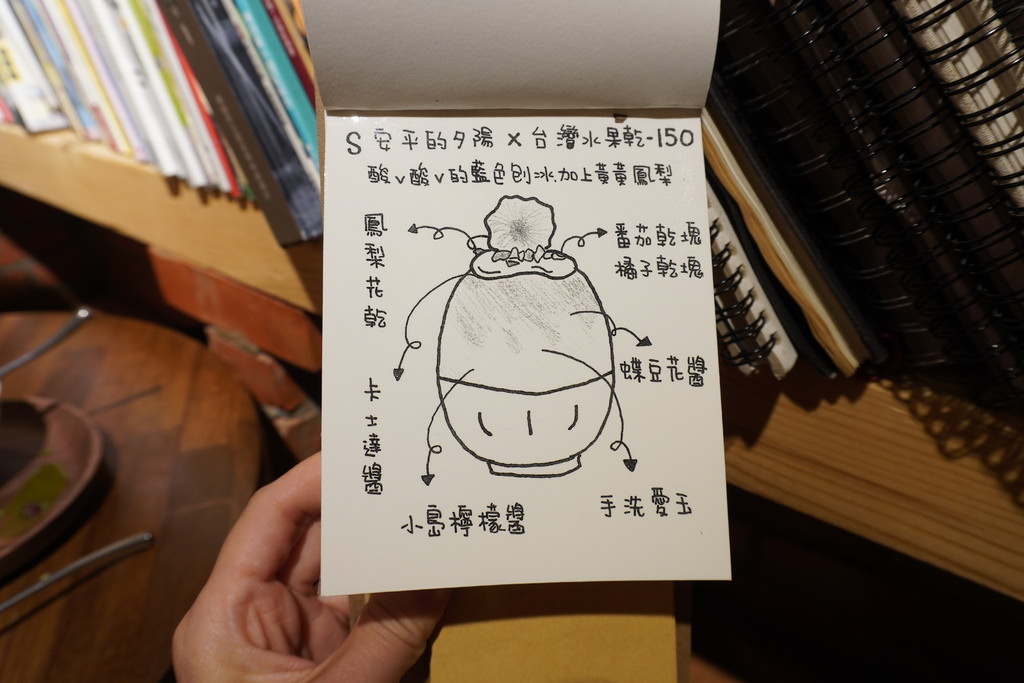 S 安平的夕陽 x 台灣水果乾-150
酸v酸v的藍色刨冰.加上黃黃鳳梨
鳳梨花乾
番茄乾塊
橘子乾塊
蝶豆花醬
卡士達醬
小島檸檬醬
手洗愛玉